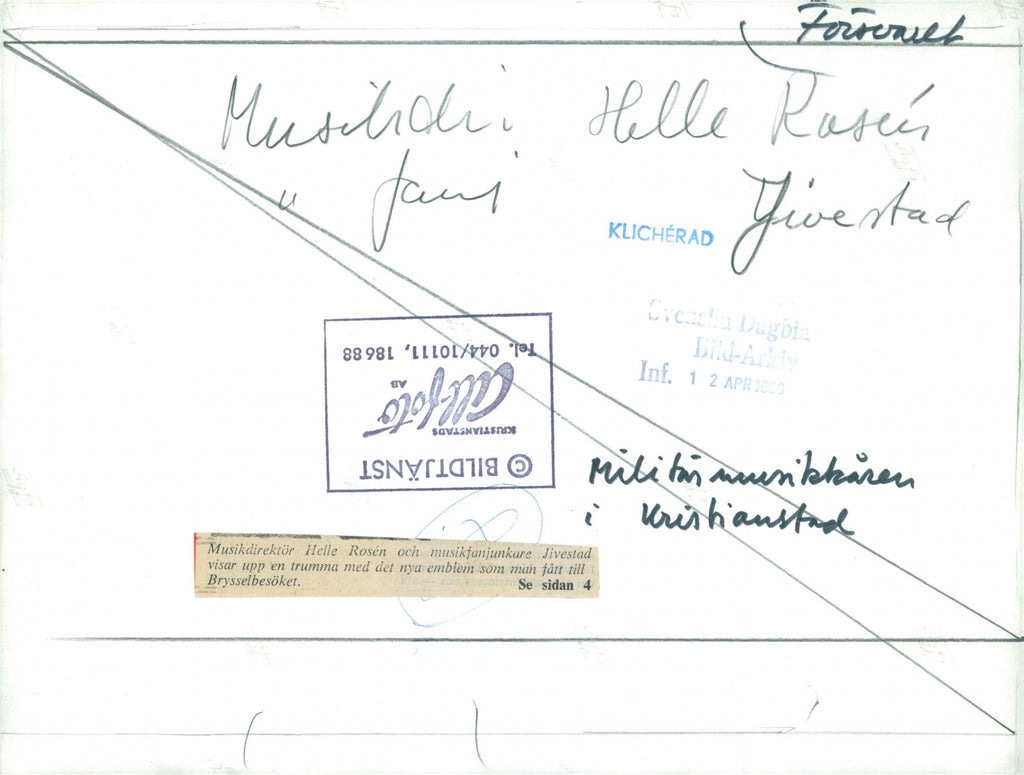 Försvaret
Musikdir. Helle Rosén
" fanj Jivestad
KLICHÉRAD
Svenska Dagbla
Bild-Arkiv
Inf. 1 2 APR 19
© BILDTJÄNST
KRISTIANSTADS
all-foto
AB
Tel. 044/10111, 18688
Militärmusikkåren
i Kristianstad
Musikdirektör Helle Rosén och musikfanjunkare Jivestad
visar upp en trumma med det nya emblem som man fått till
Brysselbesöket. Se sidan 4